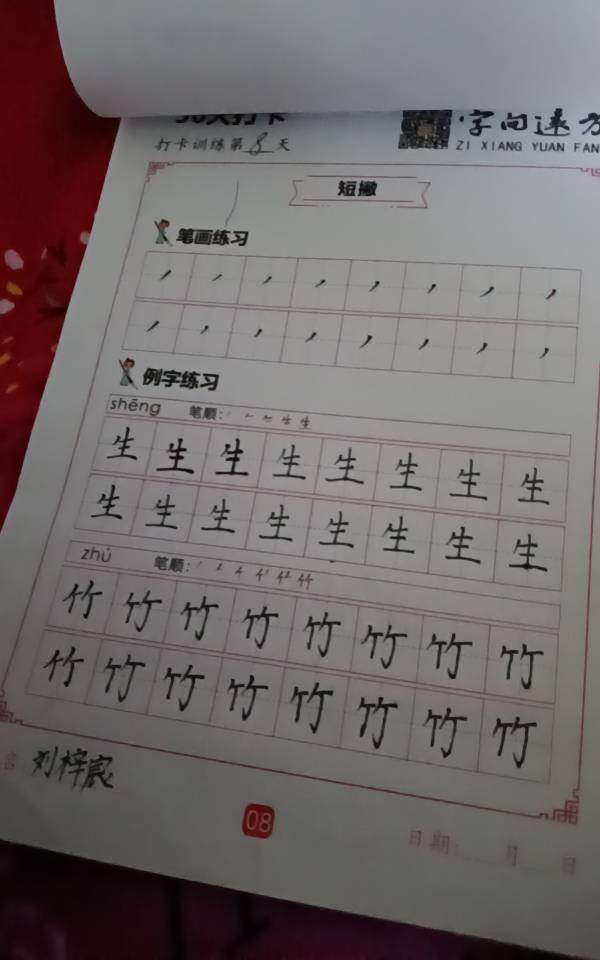 30天打卡
字向速方
打卡训练第8天
ZI XIANG YUAN FAN
短撇
笔画练习
例字练习
shēng 笔顺:
生 生 生 生 生 生 生 生
生 生 生 生 生 生 生 生
zhú 笔顺:
竹 竹 竹 竹 竹 竹 竹 竹
竹 竹 竹 竹 竹 竹 竹 竹
名 刘梓宸
08
日期: 月 日